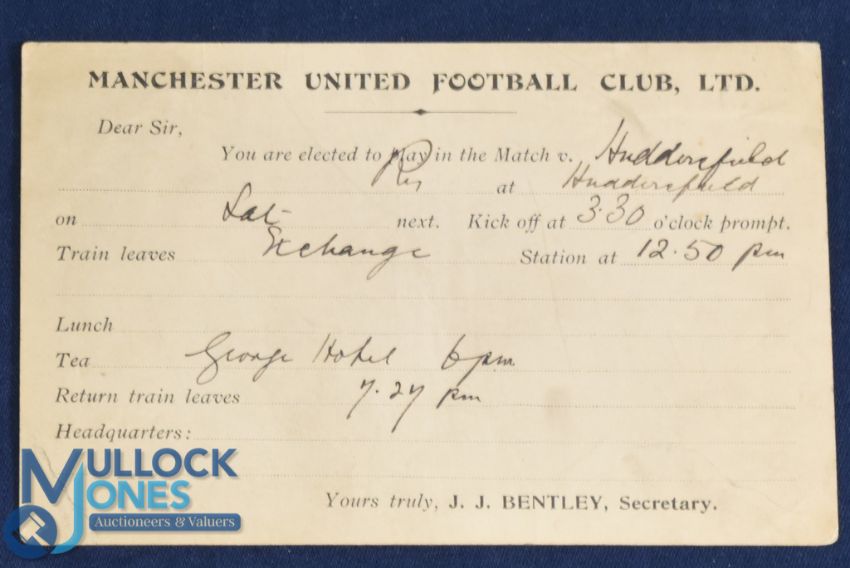 MANCHESTER UNITED FOOTBALL CLUB, LTD.
Dear Sir,
You are elected to play in the Match v. Huddersfield
Res at Huddersfield
on Sat- next. Kick off at 3.30 o'clock prompt.
Train leaves Exchange Station at 12.50 pm
Lunch
Tea George Hotel 6 pm
Return train leaves 7.27 pm
Headquarters:
Yours truly, J. J. BENTLEY, Secretary.
MULLOCK
JONES
Auctioneers & Valuers